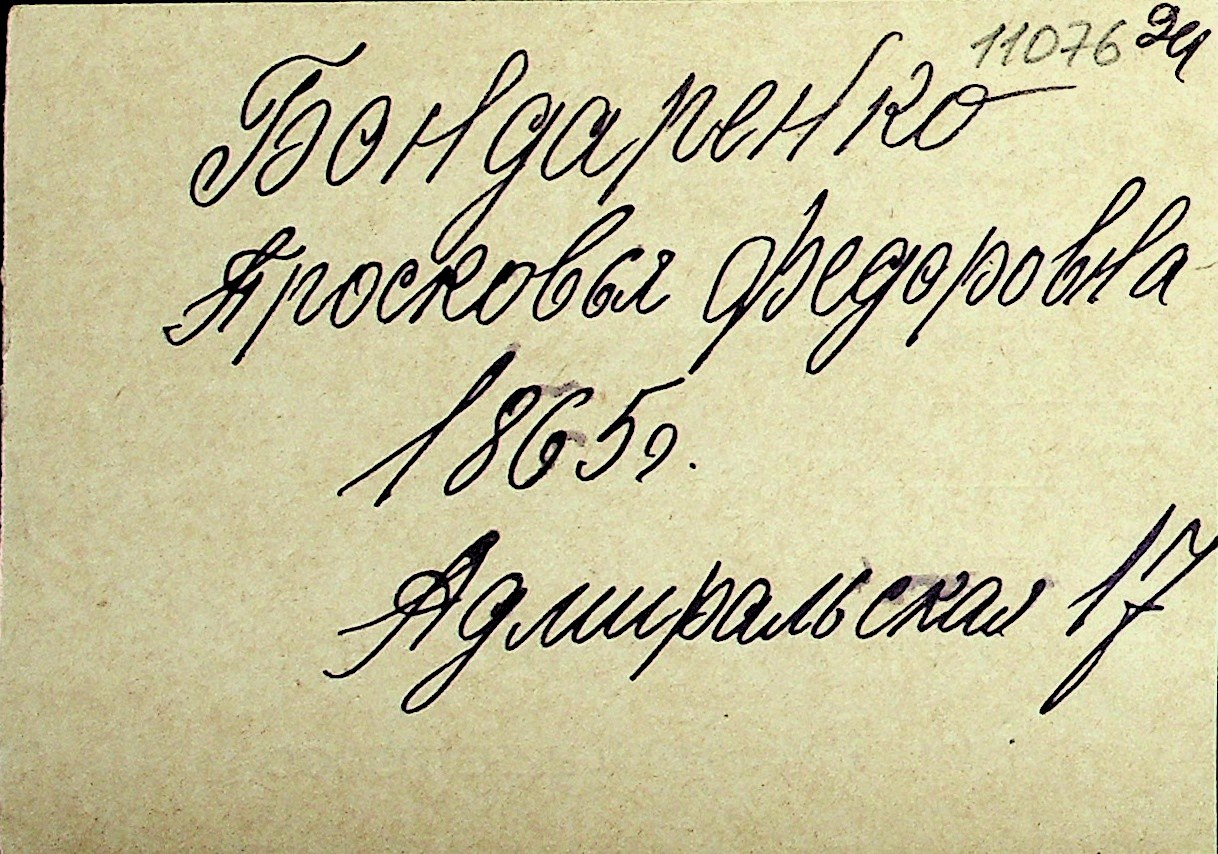 11076
Бондаренко
Просковья Федоровна
1865г.
Адмиральская 17